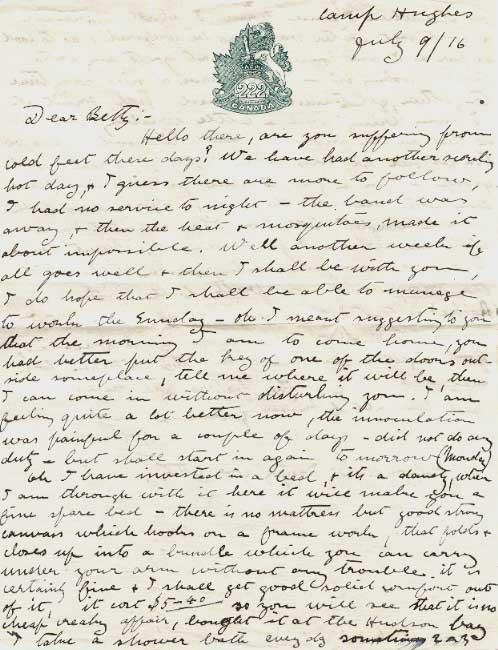 Camp Hughes
July 9/16
222
CANADA
Dear Betty:-
Hello there, are you suffering from
cold feet these days? We have had another scorching
hot day, & I guess there are more to follow,
I had no service to night - the band was
away & then the heat & mosquitoes, made it
about impossible. Well another week if
all goes well & then I shall be with you,
I do hope that I shall be able to manage
to work the Sunday - oh I meant suggesting to you
that the morning I am to come home, you
had better put the key of one of the doors out-
side someplace, tell me where it will be, then
I can come in without disturbing you. I am
feeling quite a lot better now, the innoculation
was painful for a couple of days - did not do any
duty - but shall start in again to morrow (Monday)
Oh I have invested in a bed, & its a dandy, when
I am through with it here it will make you a
fine spare bed - there is no mattress but good strong
canvass which hooks on a frame work, that folds &
closes up into a bundle which you can carry
under your arm without any trouble. it is
certainly fine & I shall get good solid comfort out
of it, it cost $5-40 so you will see that it is no
cheap creaky affair, bought it at the Hudson bay
I take a shower bath every day sometimes 2 a